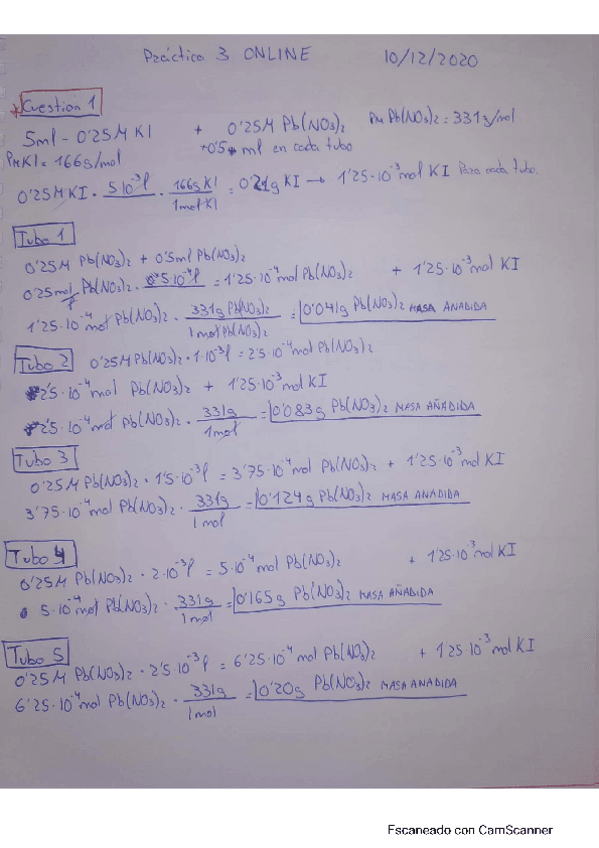 Práctica 3 ONLINE 10/12/2020
* Cuestion 1
5ml - 0'25M KI + 0'25M Pb(NO3)2 Pm Pb(NO3)2 = 331g/mol
+0'5 ml en cada tubo
PmKI = 166g/mol
0'25M KI · 5·10^-3 l · 166g KI / 1 mol KI = 0'21g KI → 1'25·10^-3 mol KI Para cada tubo.
Tubo 1
0'25M Pb(NO3)2 + 0'5ml Pb(NO3)2
0'25 mol/l Pb(NO3)2 · 0'5·10^-3 l = 1'25·10^-4 mol Pb(NO3)2 + 1'25·10^-3 mol KI
1'25·10^-4 mol Pb(NO3)2 · 331g Pb(NO3)2 / 1 mol Pb(NO3)2 = 0'041g Pb(NO3)2 MASA AÑADIDA
Tubo 2 0'25M Pb(NO3)2 · 1·10^-3 l = 2'5·10^-4 mol Pb(NO3)2
2'5·10^-4 mol Pb(NO3)2 + 1'25·10^-3 mol KI
2'5·10^-4 mol Pb(NO3)2 · 331g / 1mol = 0'083g Pb(NO3)2 MASA AÑADIDA
Tubo 3
0'25M Pb(NO3)2 · 1'5·10^-3 l = 3'75·10^-4 mol Pb(NO3)2 + 1'25·10^-3 mol KI
3'75·10^-4 mol Pb(NO3)2 · 331g / 1 mol = 0'124g Pb(NO3)2 MASA AÑADIDA
Tubo 4
0'25M Pb(NO3)2 · 2·10^-3 l = 5·10^-4 mol Pb(NO3)2 + 1'25·10^-3 mol KI
5·10^-4 mol Pb(NO3)2 · 331g / 1 mol = 0'165g Pb(NO3)2 MASA AÑADIDA
Tubo 5
0'25M Pb(NO3)2 · 2'5·10^-3 l = 6'25·10^-4 mol Pb(NO3)2 + 1'25·10^-3 mol KI
6'25·10^-4 mol Pb(NO3)2 · 331g / 1 mol = 0'20g Pb(NO3)2 MASA AÑADIDA
Escaneado con CamScanner